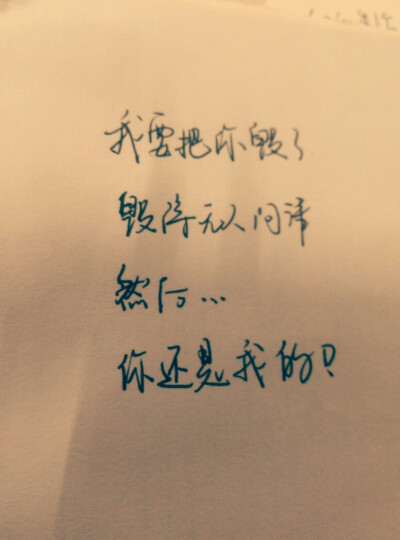 我要把你毁了
毁得无人问津
然后...
你还是我的?